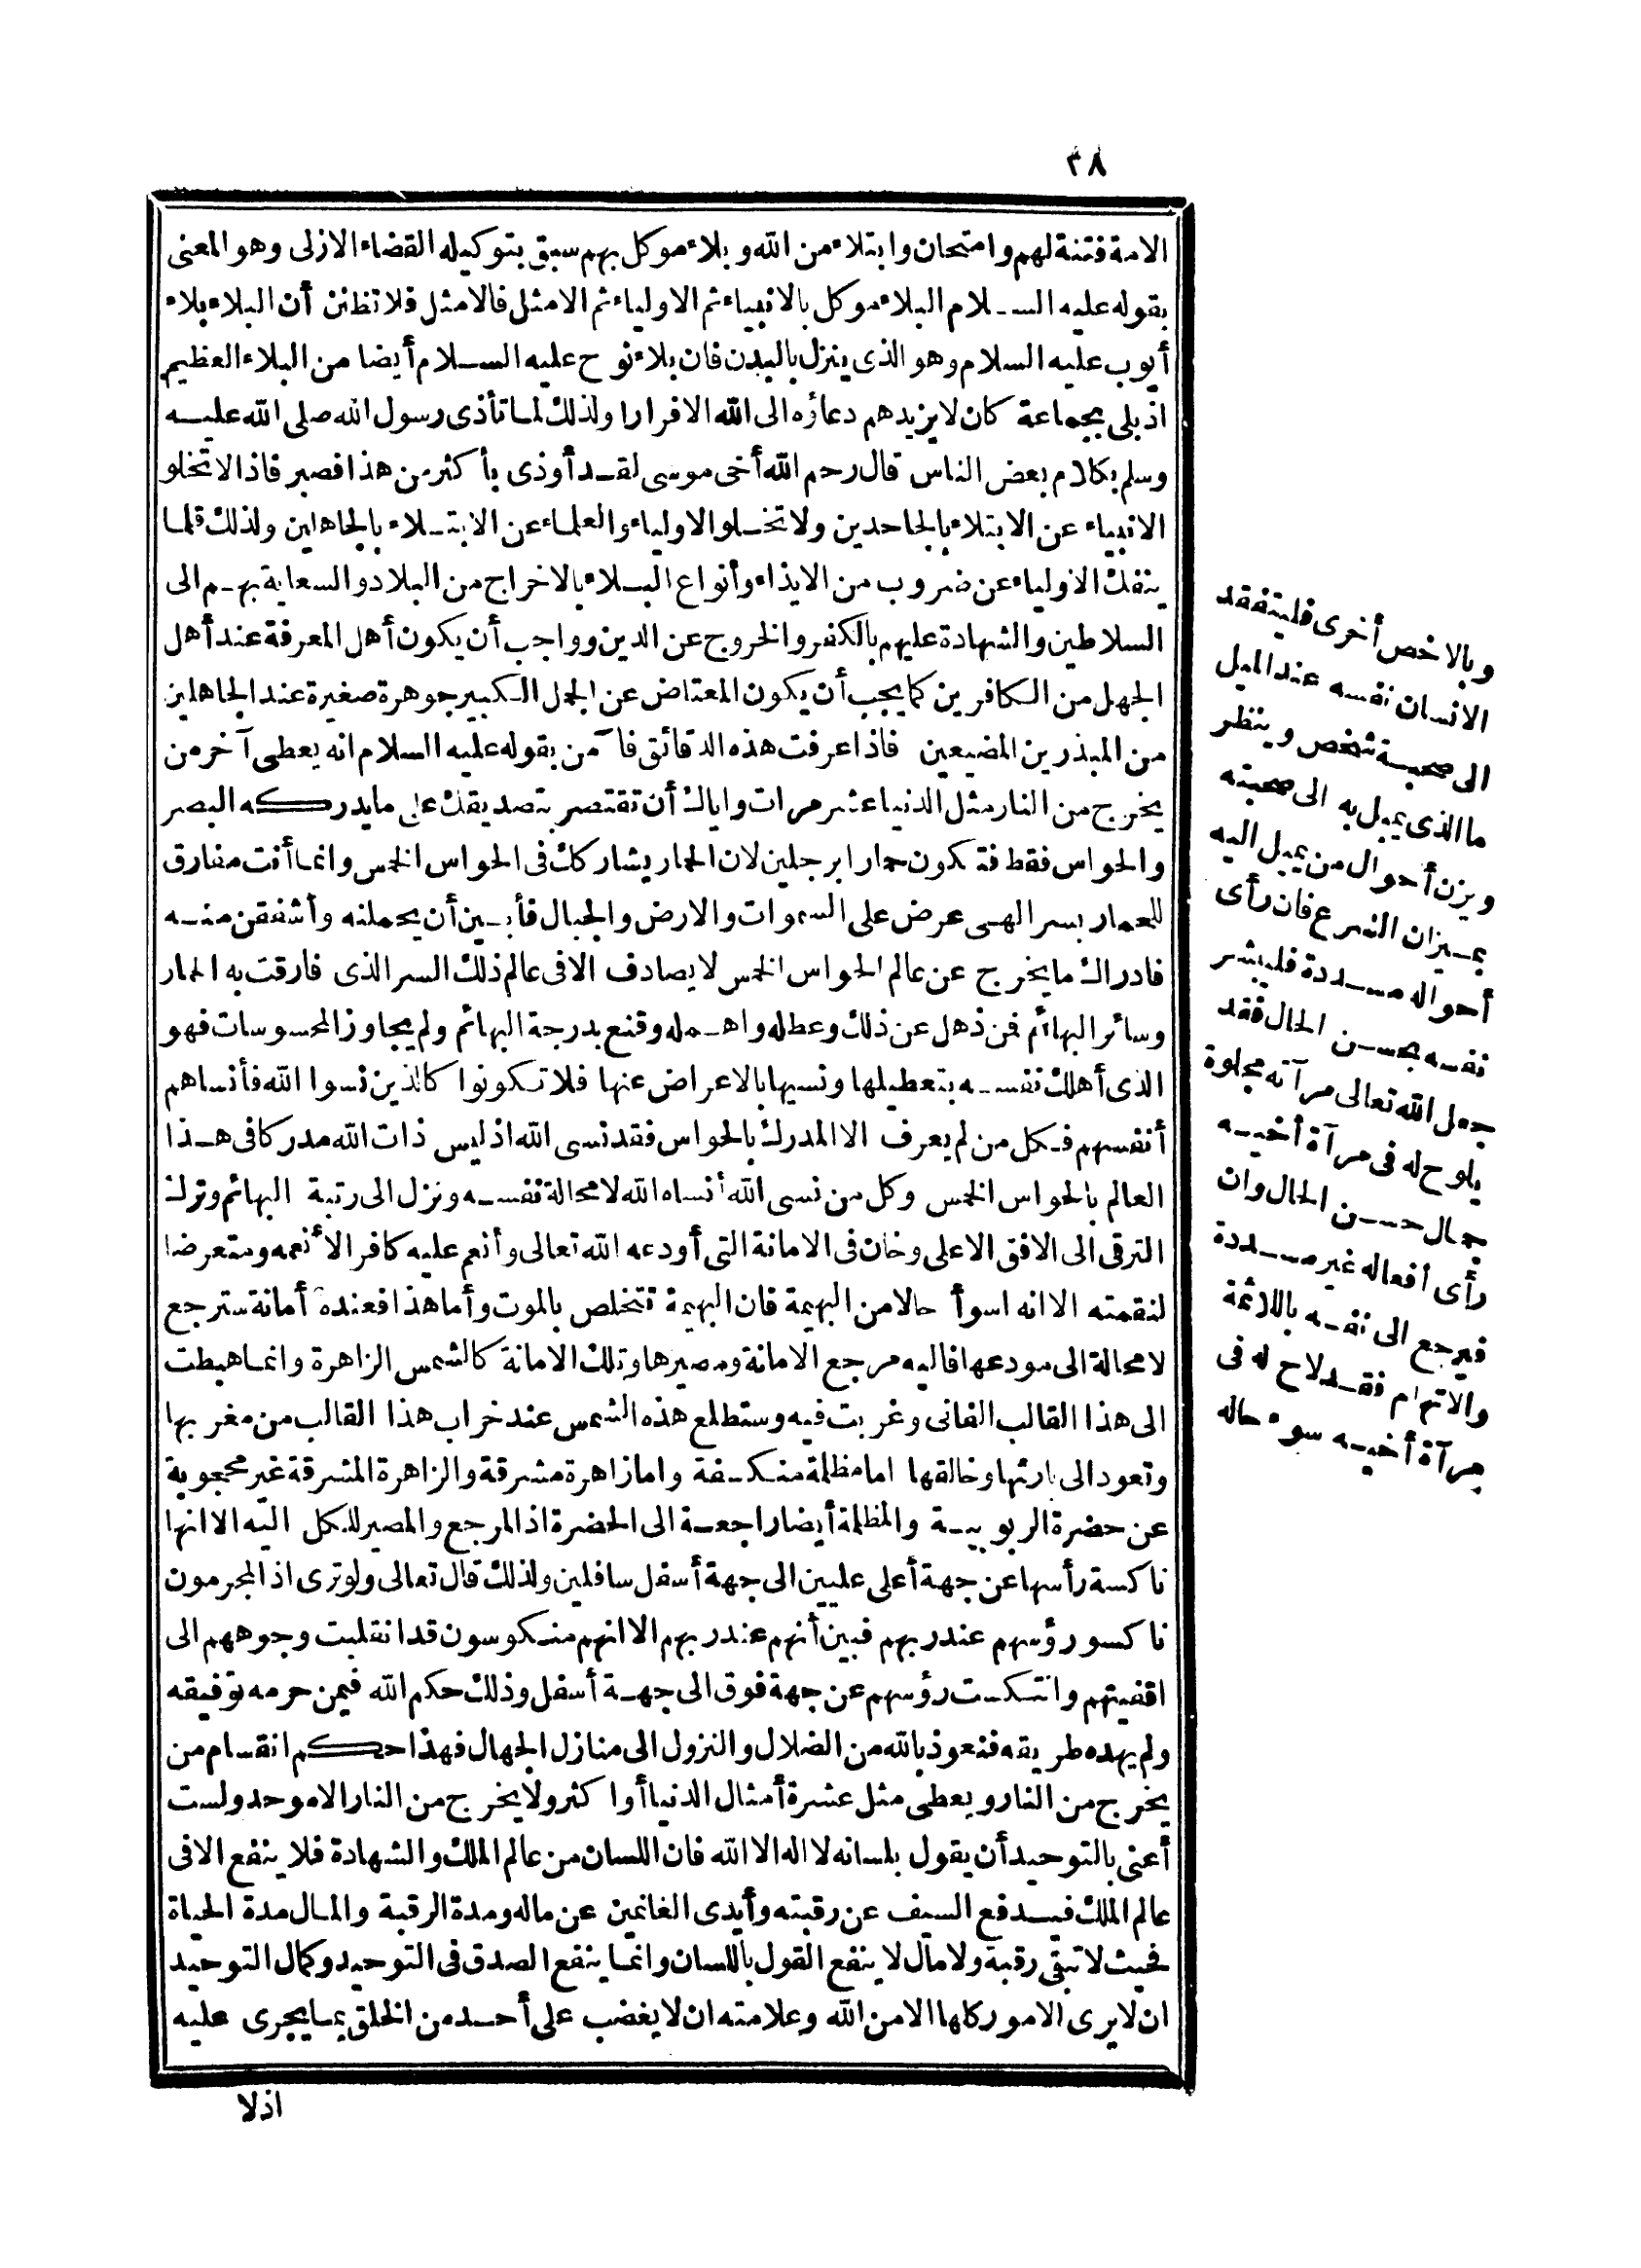 ٣٨
الامة فتنة لهم وامتحان وابتلاء من الله وبلاء موكل بهم سبق بتوكيله القضاء الازلى وهو المعنى
بقوله عليه السلام البلاء موكل بالانبياء ثم الاولياء ثم الامثل فالامثل فلا تظنن أن البلاء بلاء
أيوب عليه السلام وهو الذى ينزل بالبدن فان بلاء نوح عليه السلام أيضا من البلاء العظيم
اذ بلى بجماعة كان لا يزيدهم دعاؤه الى الله الا فرارا ولذلك لما تأذى رسول الله صلى الله عليه
وسلم بكلام بعض الناس قال رحم الله أخى موسى لقد أوذى بأكثر من هذا فصبر فاذا لا تخلو
الانبياء عن الابتلاء بالجاحدين ولا تخلو الاولياء والعلماء عن الابتلاء بالجاهلين ولذلك قلما
ينفك الاولياء عن ضروب من الايذاء وأنواع البلاء بالاخراج من البلاد والسعاية بهم الى
السلاطين والشهادة عليهم بالكفر والخروج عن الدين وواجب أن يكون أهل المعرفة عند أهل
الجهل من الكافرين كما يجب أن يكون المعتاض عن الجمل الكبير جوهرة صغيرة عند الجاهلين
من المبذرين المضيعين فاذا عرفت هذه الدقائق فآمن بقوله عليه السلام انه يعطى آخر من
يخرج من النار مثل الدنيا عشر مرات واياك أن تقتصر بتصديقك على ما يدركه البصر
والحواس فقط فتكون حمارا برجلين لان الحمار يشاركك فى الحواس الخمس وانما أنت مفارق
للحمار بسر الهى عرض على السموات والارض والجبال فأبين أن يحملنه وأشفقن منه
فادراك ما يخرج عن عالم الحواس الخمس لا يصادف الا فى عالم ذلك السر الذى فارقت به الحمار
وسائر البهائم فمن ذهل عن ذلك وعطله واهمله وقنع بدرجة البهائم ولم يجاوز المحسوسات فهو
الذى أهلك نفسه بتعطيلها ونسيها بالاعراض عنها فلا تكونوا كالذين نسوا الله فأنساهم
أنفسهم فكل من لم يعرف الا المدرك بالحواس فقد نسى الله اذ ليس ذات الله مدركا فى هذا
العالم بالحواس الخمس وكل من نسى الله أنساه الله لا محالة نفسه ونزل الى رتبة البهائم وترك
الترقى الى الافق الاعلى وخان فى الامانة التى أودعه الله تعالى وأنعم عليه كافر الأنعمه ومتعرضا
لنقمته الا انه اسوأ حالا من البهيمة فان البهيمة تتخلص بالموت وأما هذا فعنده أمانة سترجع
لا محالة الى مودعها فاليه مرجع الامانة ومصيرها وتلك الامانة كالشمس الزاهرة وانما هبطت
الى هذا القالب الفانى وغربت فيه وستطلع هذه الشمس عند خراب هذا القالب من مغربها
وتعود الى بارئها وخالقها اما مظلمة منكسفة واما زاهرة مشرقة والزاهرة المشرقة غير محجوبة
عن حضرة الربوبية والمظلمة أيضا راجعة الى الحضرة اذ المرجع والمصير للكل اليه الا انها
ناكسة رأسها عن جهة أعلى عليين الى جهة أسفل سافلين ولذلك قال تعالى ولو ترى اذ المجرمون
ناكسو رؤسهم عند ربهم فبين أنهم عند ربهم الا انهم منكوسون قد انقلبت وجوههم الى
اقفيتهم وانتكست رؤسهم عن جهة فوق الى جهة أسفل وذلك حكم الله فيمن حرمه توفيقه
ولم يهده طريقه فنعوذ بالله من الضلال والنزول الى منازل الجهال فهذا حكم انقسام من
يخرج من النار ويعطى مثل عشرة أمثال الدنيا أوا كثر ولا يخرج من النار الا موحد ولست
أعنى بالتوحيد أن يقول بلسانه لا اله الا الله فان اللسان من عالم الملك والشهادة فلا ينفع الا فى
عالم الملك فيدفع السيف عن رقبته وأيدى الغانمين عن ماله ومدة الرقبة والمال مدة الحياة
فحيث لا تبقى رقبة ولا مال لا ينفع القول باللسان وانما ينفع الصدق فى التوحيد وكمال التوحيد
ان لا يرى الامور كلها الا من الله وعلامته ان لا يغضب على أحد من الخلق بما يجرى عليه
اذلا
وبالاخص أخرى فليتفقد
الانسان نفسه عند الميل
الى صحبة شخص وينظر
ما الذى يميل به الى صحبته
ويزن أحوال من يميل اليه
بميزان الشرع فان رأى
أحواله مسددة فليبشر
نفسه بحسن الحال فقد
جعل الله تعالى مرآته مجلوة
يلوح له فى مرآة أخيه
جمال حسن الحال وان
رأى أفعاله غير مسددة
فيرجع الى نفسه باللائمة
والاتهام فقد لاح له فى
مرآة أخيه سوء حاله